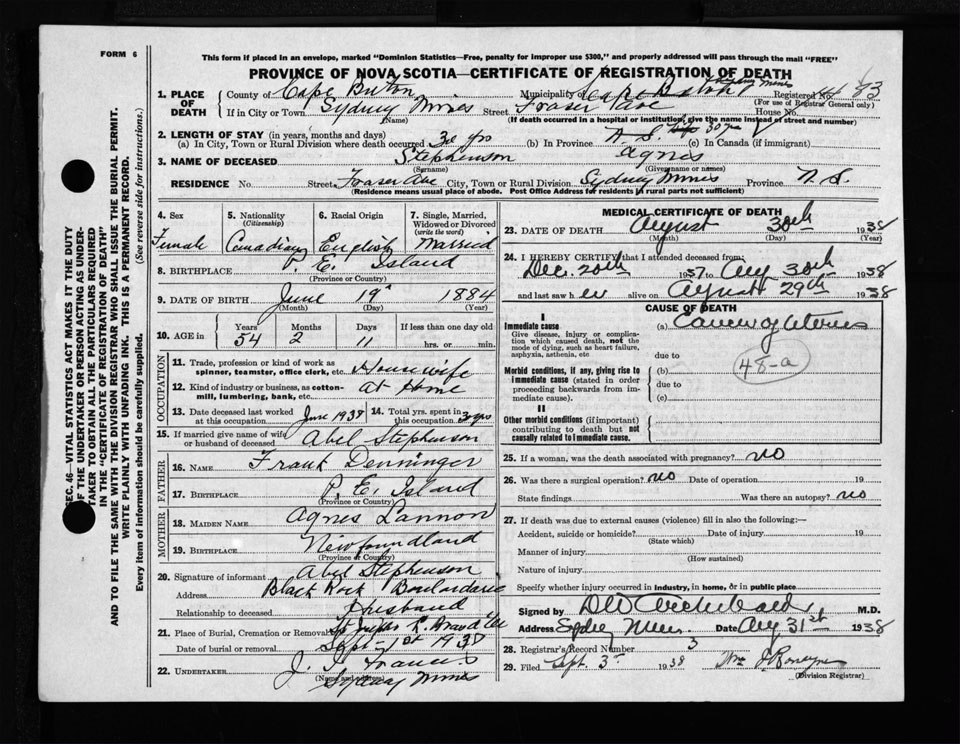 FORM 6
This form if placed in an envelope, marked "Dominion Statistics—Free, penalty for improper use $300," and properly addressed will pass through the mail "FREE"
PROVINCE OF NOVA SCOTIA—CERTIFICATE OF REGISTRATION OF DEATH
1. PLACE OF DEATH
County of Cape Breton Municipality of Cape Breton Sydney Mines Registered No. 483
(For use of Registrar General only)
If in City or Town Sydney Mines Street Fraser Ave House No.
(Name) (If death occurred in a hospital or institution, give the name instead of street and number)
2. LENGTH OF STAY (in years, months and days)
(a) In City, Town or Rural Division where death occurred 30 yrs (b) In Province N. S. 30 yrs (c) In Canada (if immigrant)
3. NAME OF DECEASED Stephenson Agnes
(Surname) (Given name or names)
RESIDENCE No. Street Fraser Ave City, Town or Rural Division Sydney Mines Province N. S.
(Residence means usual place of abode. Post Office Address for residents in rural parts not sufficient)
4. Sex
Female
5. Nationality
(Citizenship)
Canadian
6. Racial Origin
English
7. Single, Married, Widowed or Divorced
(write the word)
Married
8. BIRTHPLACE P. E. Island
(Province or Country)
9. DATE OF BIRTH June 19 1884
(Month) (Day) (Year)
10. AGE in
Years Months Days If less than one day old
54 2 11 hrs. or min.
OCCUPATION
11. Trade, profession or kind of work as spinner, teamster, office clerk, etc. Housewife
12. Kind of industry or business, as cotton-mill, lumbering, bank, etc. at Home
13. Date deceased last worked at this occupation June 1938
14. Total yrs. spent in this occupation 30 yrs
15. If married give name of wife or husband of deceased Abel Stephenson
FATHER
16. NAME Frank Denninger
17. BIRTHPLACE P. E. Island
(Province or Country)
MOTHER
18. MAIDEN NAME Agnes Lannon
19. BIRTHPLACE Newfoundland
(Province or Country)
20. Signature of informant Abel Stephenson
Address Black Rock Boulardarie
Relationship to deceased Husband
21. Place of Burial, Cremation or Removal
Date of burial or removal Sept 1st 1938
22. UNDERTAKER J. J. Francis
(Name and address)
Sydney Mines
MEDICAL CERTIFICATE OF DEATH
23. DATE OF DEATH August 30th 1938
(Month) (Day) (Year)
24. I HEREBY CERTIFY that I attended deceased from:
Dec. 20th 1937 to Aug 30th 1938
and last saw h er alive on August 29th 1938
CAUSE OF DEATH
I
Immediate cause
Give disease, injury or complication which caused death, not the mode of dying, such as heart failure, asphyxia, asthenia, etc
(a) Cancer of Uterus
due to
48-a
Morbid conditions, if any, giving rise to immediate cause (stated in order proceeding backwards from immediate cause).
(b)
due to
(c)
II
Other morbid conditions (if important) contributing to death but not causally related to immediate cause.
25. If a woman, was the death associated with pregnancy? no
26. Was there a surgical operation? no Date of operation 19
State findings Was there an autopsy? no
27. If death was due to external causes (violence) fill in also the following:—
Accident, suicide or homicide? Date of injury 19
(State which)
Manner of injury
(How sustained)
Nature of injury
Specify whether injury occurred in Industry, in home, or in public place
Signed by M.D.
Address Sydney Mines Date Aug 31st 1938
28. Registrar's Record Number 3
29. Filed Sept. 3 1938
(Division Registrar)
SEC. 46—VITAL STATISTICS ACT MAKES IT THE DUTY
OF THE UNDERTAKER OR PERSON ACTING AS UNDER-
TAKER TO OBTAIN ALL THE PARTICULARS REQUIRED
IN THE "CERTIFICATE OF REGISTRATION OF DEATH"
AND TO FILE THE SAME WITH THE DIVISION REGISTRAR WHO SHALL ISSUE THE BURIAL PERMIT.
WRITE PLAINLY WITH UNFADING INK. THIS IS A PERMANENT RECORD.
Every item of information should be carefully supplied. (See reverse side for instructions.)